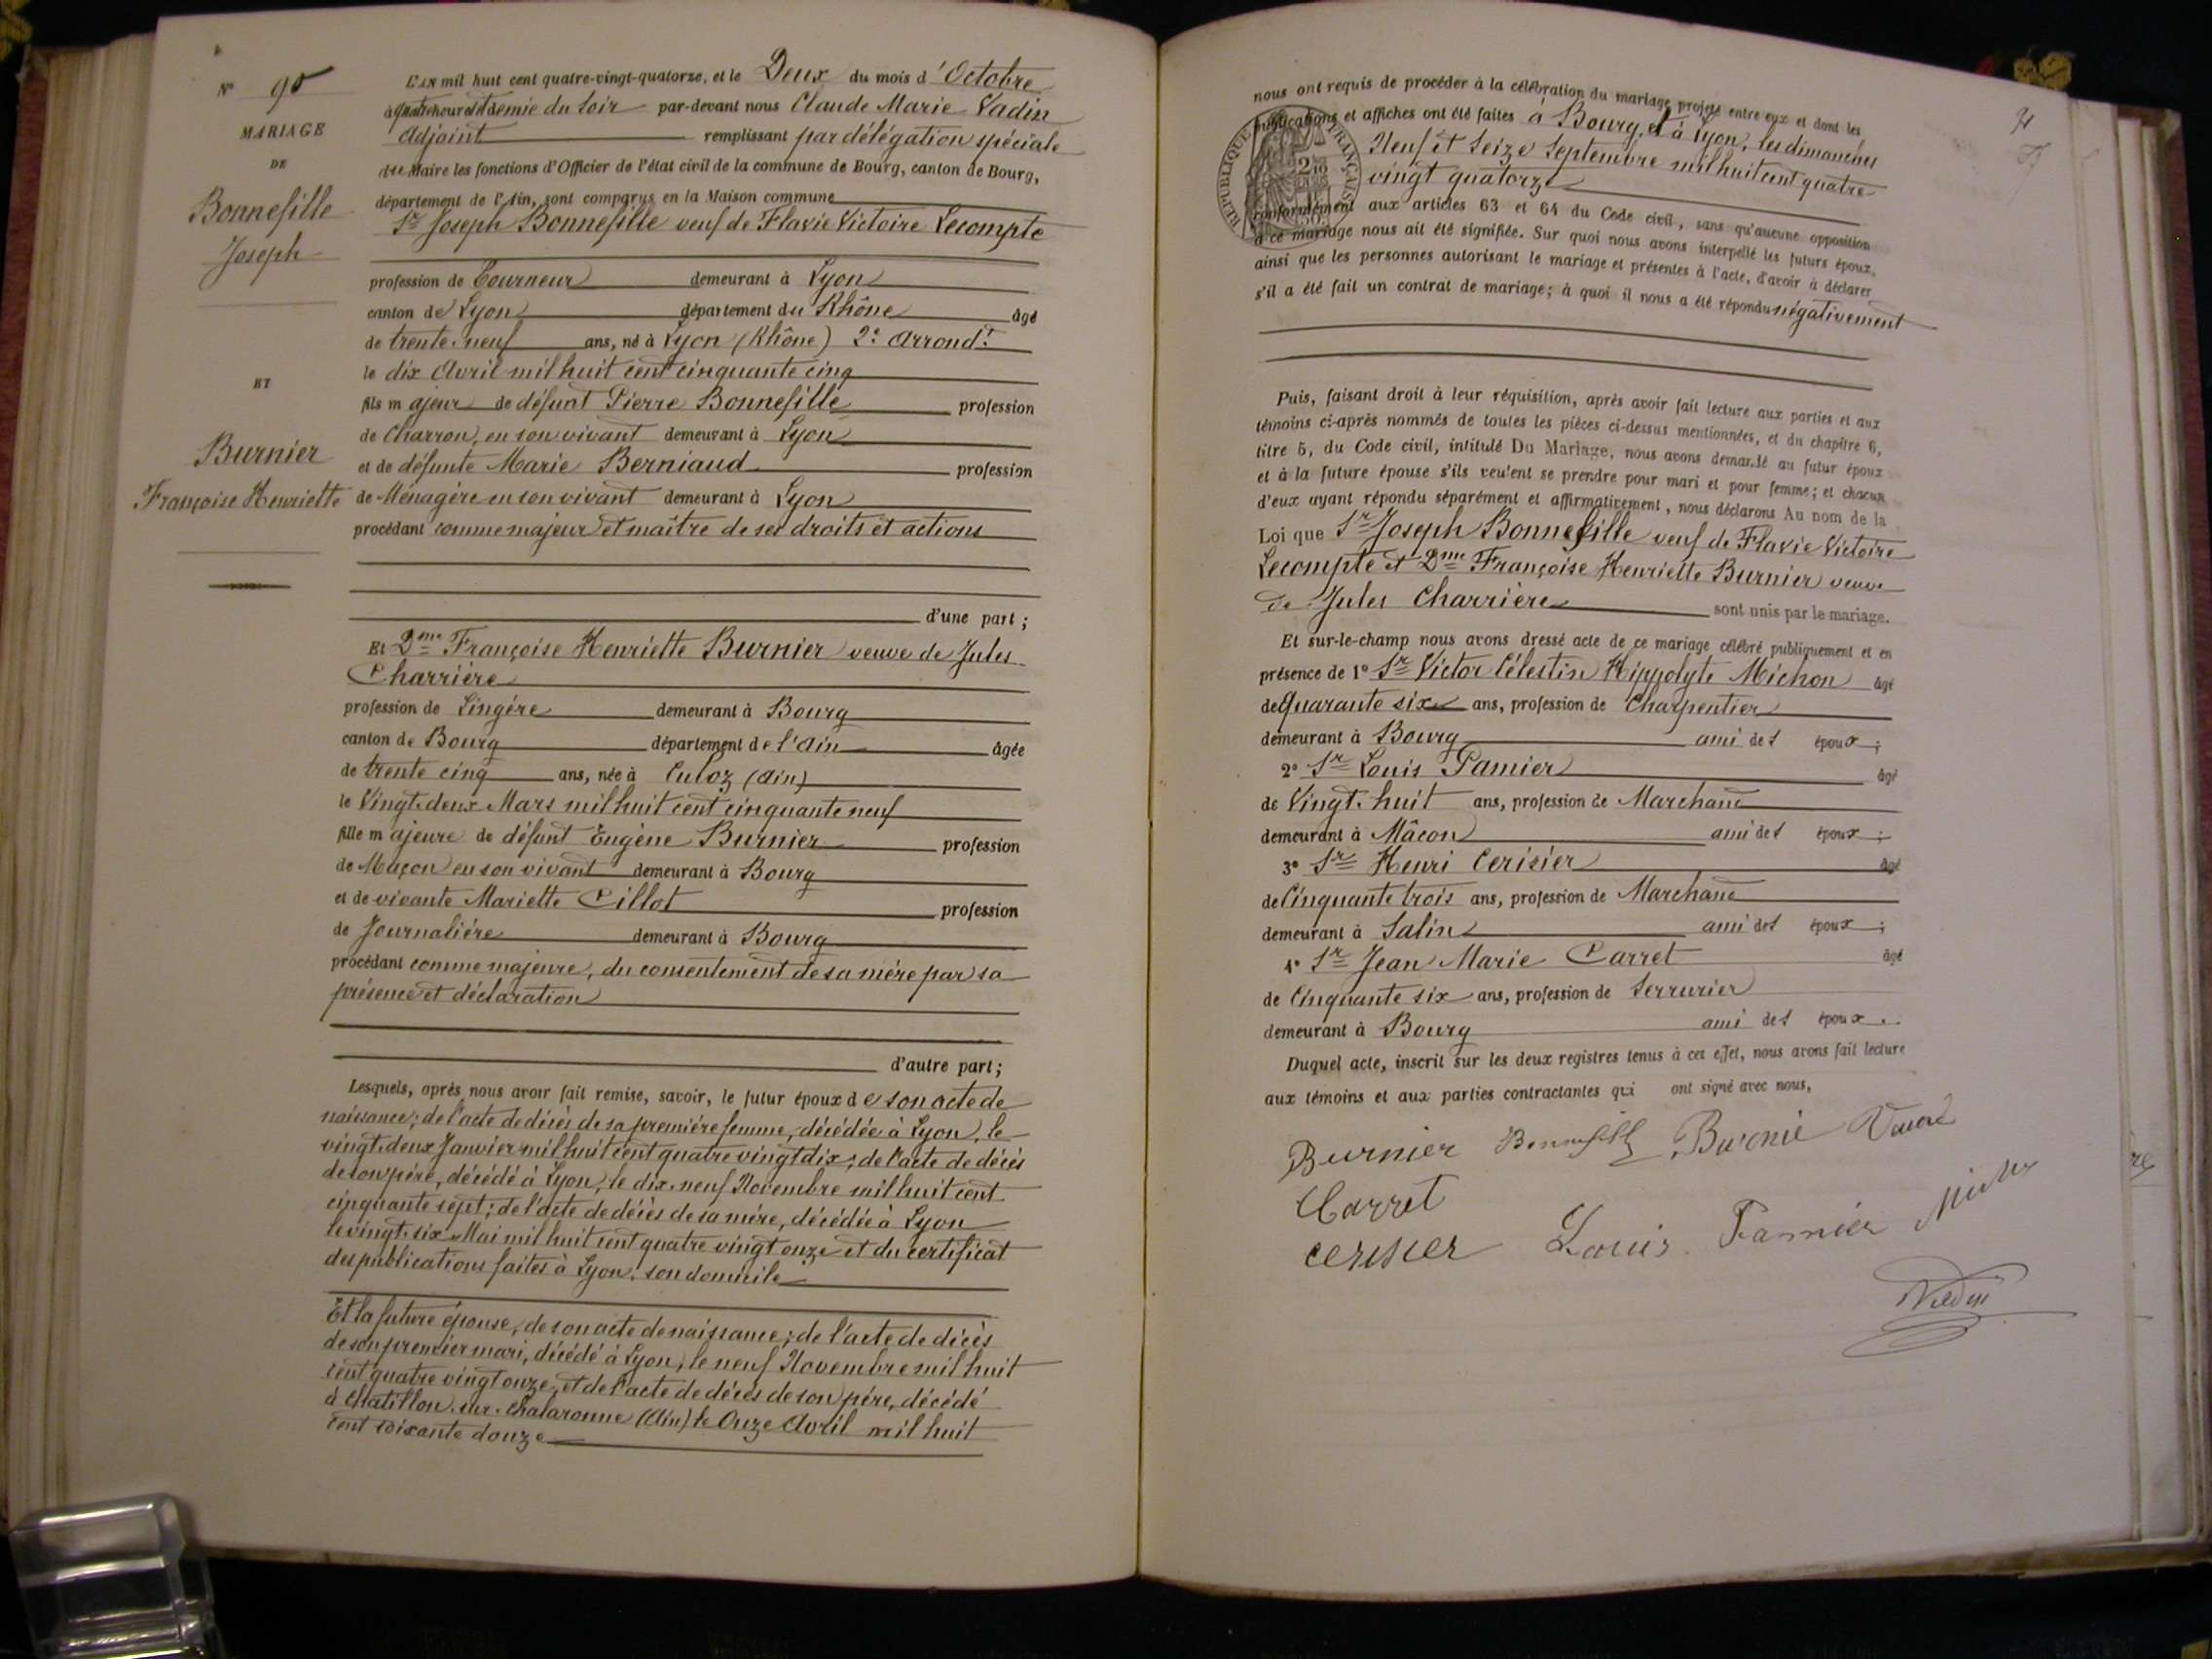 N° 95
MARIAGE
DE
Bonnefille
Joseph
ET
Burnier
Françoise Henriette
L'AN mil huit cent quatre-vingt-quatorze, et le Deux du mois d'Octobre
à quatre heures et demie du Soir par-devant nous Claude Marie Vadin
Adjoint remplissant par délégation spéciale
du Maire les fonctions d'Officier de l'état civil de la commune de Bourg, canton de Bourg,
département de l'Ain, sont comparus en la Maison commune
Sr Joseph Bonnefille veuf de Flavie Victoire Lecompte
profession de Tourneur demeurant à Lyon
canton de Lyon département du Rhône âgé
de trente-neuf ans, né à Lyon (Rhône) 2e Arrondt
le dix Avril mil huit cent cinquante cinq
fils majeur de défunt Pierre Bonnefille profession
de Charron, en son vivant demeurant à Lyon
et de défunte Marie Berniaud profession
de Ménagère en son vivant demeurant à Lyon
procédant comme majeur et maître de ses droits et actions
d'une part ;
Et Dme Françoise Henriette Burnier veuve de Jules
Charrière
profession de Lingère demeurant à Bourg
canton de Bourg département de l'Ain âgée
de trente cinq ans, née à Culoz (Ain)
le Vingt-deux Mars mil huit cent cinquante neuf
fille majeure de défunt Eugène Burnier profession
de Maçon en son vivant demeurant à Bourg
et de vivante Mariette Pillot profession
de Journalière demeurant à Bourg
procédant comme majeure, du consentement de sa mère par sa
présence et déclaration
d'autre part ;
Lesquels, après nous avoir fait remise, savoir, le futur époux de son acte de
naissance ; de l'acte de décès de sa première femme, décédée à Lyon, le
vingt-deux Janvier mil huit cent quatre vingt dix ; de l'acte de décès
de son père, décédé à Lyon, le dix-neuf Novembre mil huit cent
cinquante sept ; de l'acte de décès de sa mère, décédée à Lyon
le vingt-six Mai mil huit cent quatre vingt onze et du certificat
des publications faites à Lyon, son domicile
Et la future épouse, de son acte de naissance ; de l'acte de décès
de son premier mari, décédé à Lyon, le neuf Novembre mil huit
cent quatre vingt onze, et de l'acte de décès de son père, décédé
à Chatillon-sur-Chalaronne (Ain) le Onze Avril mil huit
cent soixante douze
nous ont requis de procéder à la célébration du mariage projeté entre eux et dont les
publications et affiches ont été faites à Bourg, et à Lyon, les dimanches
Neuf et Seize Septembre mil huit cent quatre
vingt quatorze
RÉPUBLIQUE FRANÇAISE
conformément aux articles 63 et 64 du Code civil, sans qu'aucune opposition
à ce mariage nous ait été signifiée. Sur quoi nous avons interpellé les futurs époux,
ainsi que les personnes autorisant le mariage et présentes à l'acte, d'avoir à déclarer
s'il a été fait un contrat de mariage ; à quoi il nous a été répondu négativement
Puis, faisant droit à leur réquisition, après avoir fait lecture aux parties et aux
témoins ci-après nommés de toutes les pièces ci-dessus mentionnées, et du chapitre 6,
titre 5, du Code civil, intitulé Du Mariage, nous avons demandé au futur époux
et à la future épouse s'ils veulent se prendre pour mari et pour femme ; et chacun
d'eux ayant répondu séparément et affirmativement, nous déclarons Au nom de la
Loi que Sr Joseph Bonnefille veuf de Flavie Victoire
Lecompte et Dme Françoise Henriette Burnier veuve
de Jules Charrière sont unis par le mariage.
Et sur-le-champ nous avons dressé acte de ce mariage célébré publiquement et en
présence de 1° Sr Victor Célestin Hippolyte Michon âgé
de Quarante six ans, profession de Charpentier
demeurant à Bourg ami des époux ;
2° Sr Louis Pamier âgé
de Vingt-huit ans, profession de Marchand
demeurant à Mâcon ami des époux ;
3° Sr Henri Cerisier âgé
de Cinquante trois ans, profession de Marchand
demeurant à Salins ami des époux ;
4° Sr Jean Marie Carret âgé
de Cinquante six ans, profession de Serrurier
demeurant à Bourg ami des époux.
Duquel acte, inscrit sur les deux registres tenus à cet effet, nous avons fait lecture
aux témoins et aux parties contractantes qui ont signé avec nous,
Burnier Bonnefille Burnié
Carret
cerisier Louis Pamier Michon
Vadin